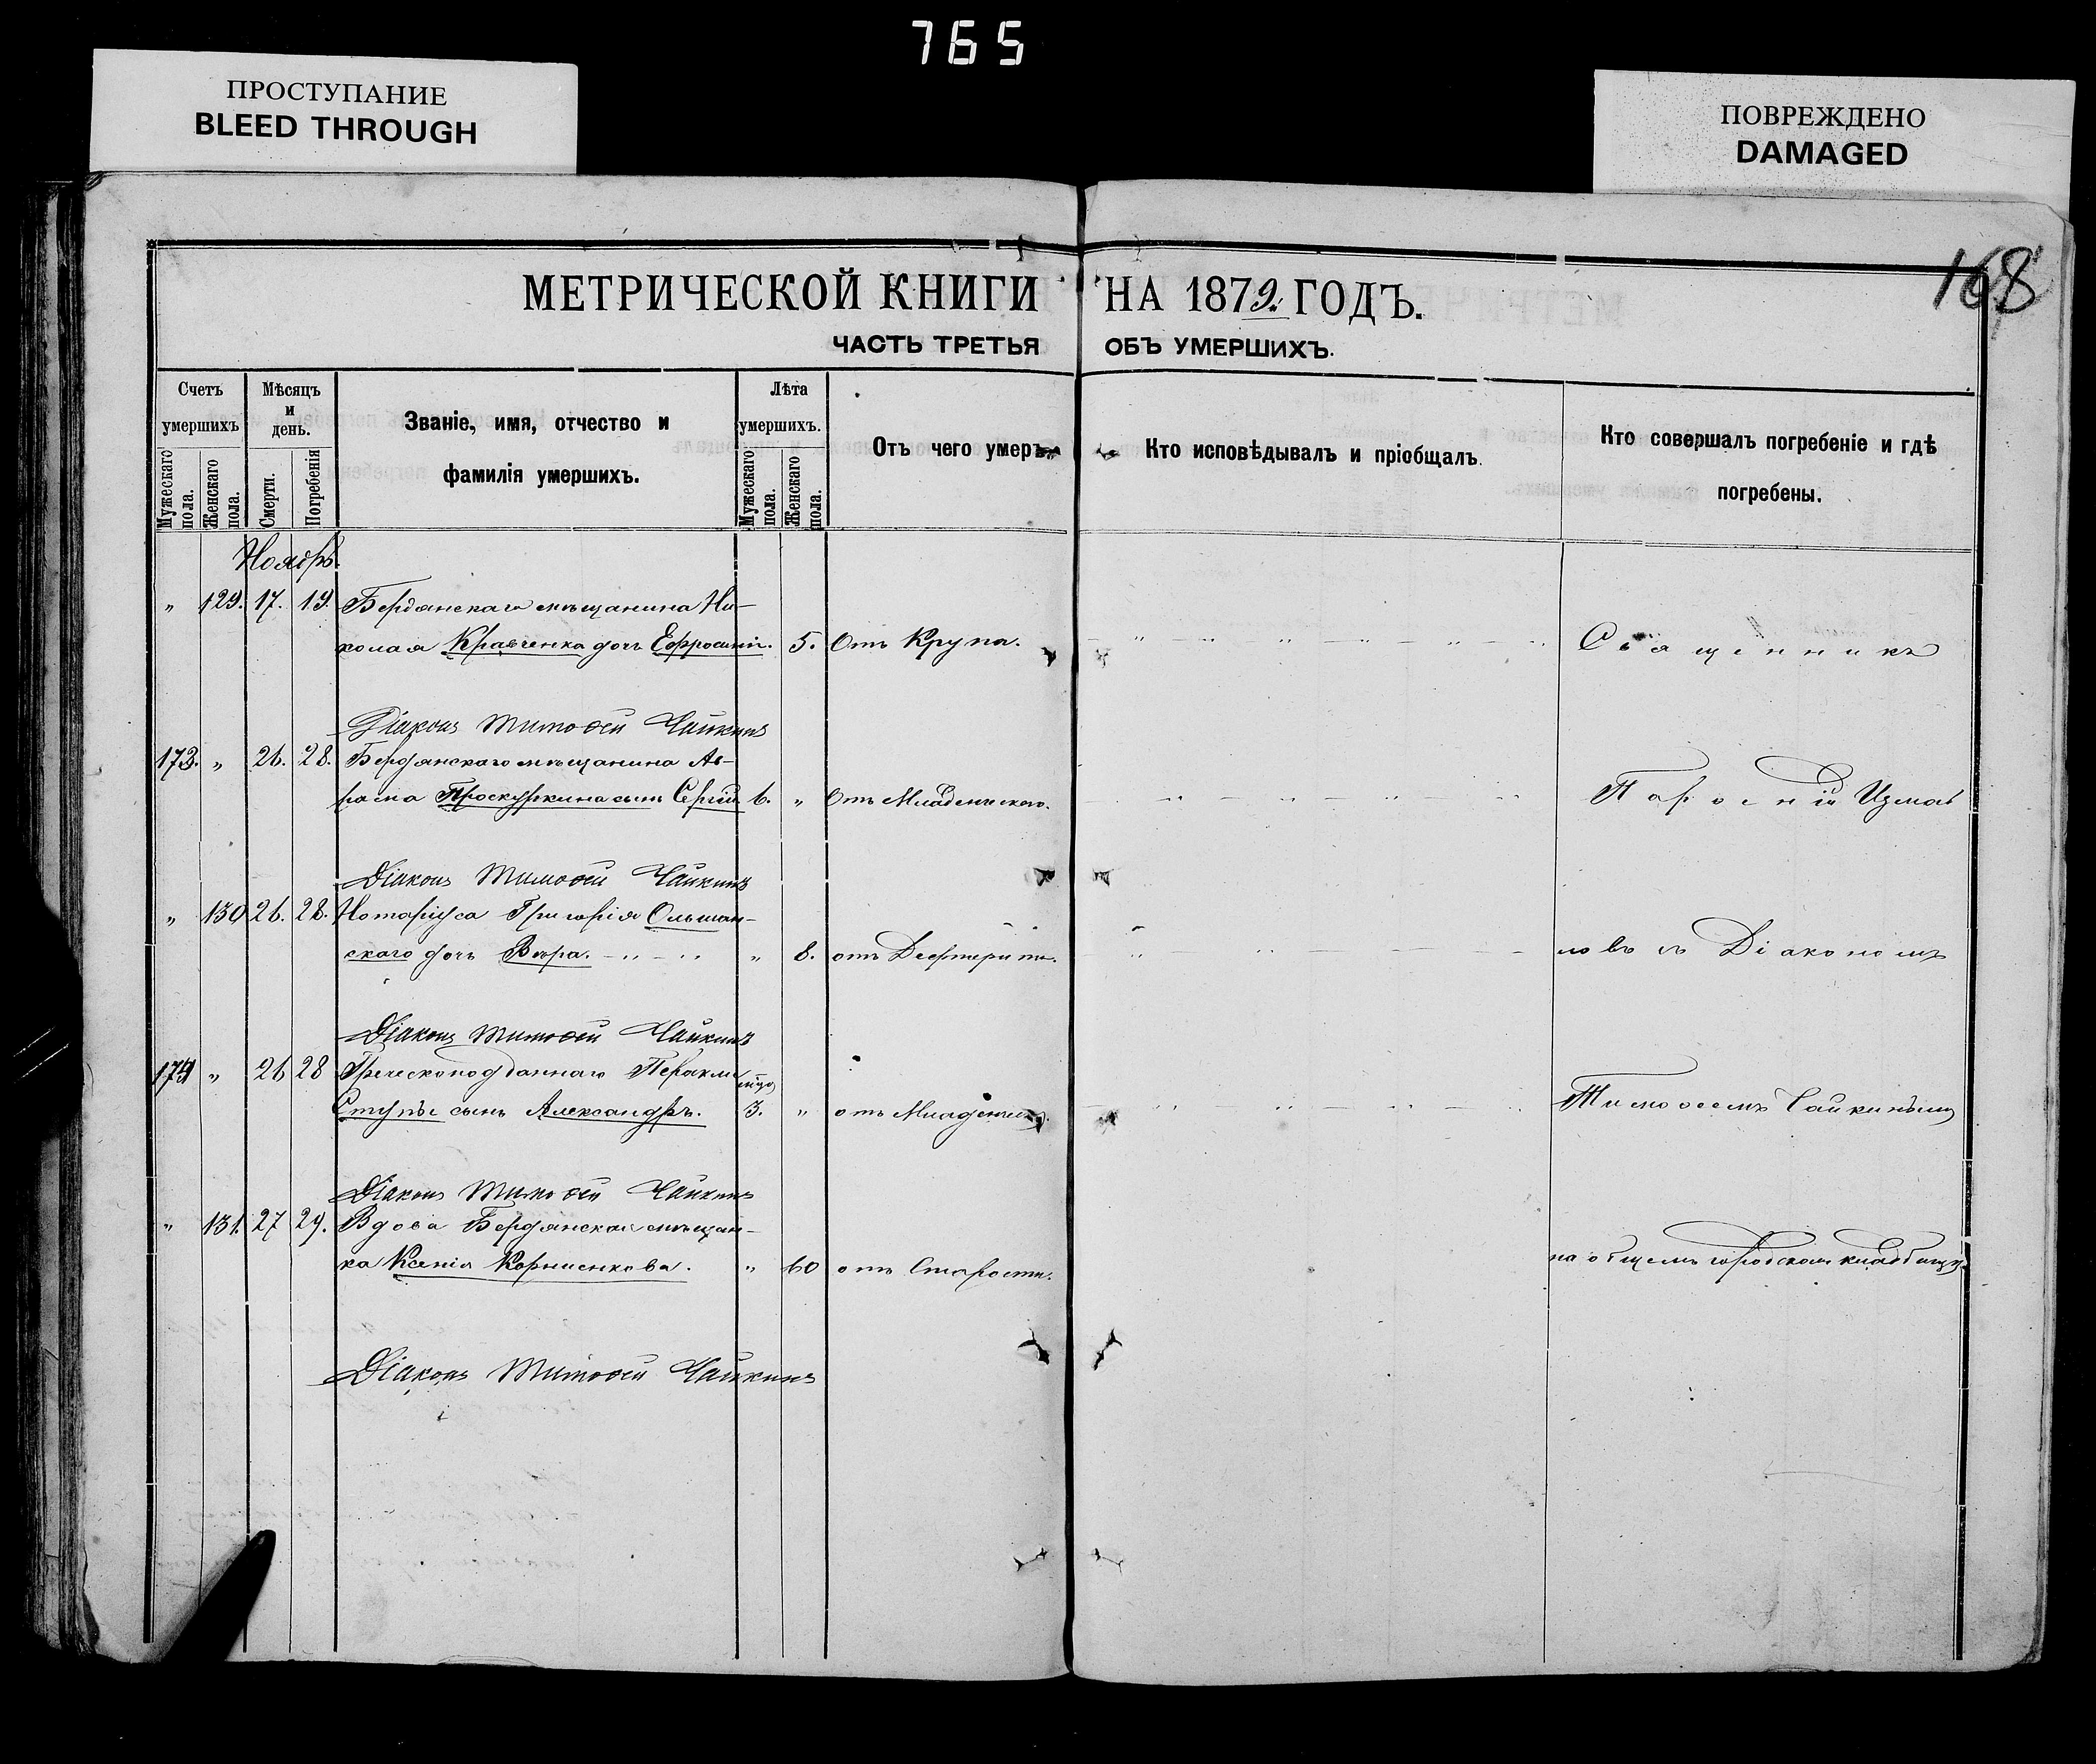 765
ПРОСТУПАНИЕ
BLEED THROUGH
ПОВРЕЖДЕНО
DAMAGED
168
МЕТРИЧЕСКОЙ КНИГИ НА 1879. ГОДЪ.
ЧАСТЬ ТРЕТЬЯ ОБЪ УМЕРШИХЪ.
Счетъ умершихъ
Мужескаго пола.
Женскаго пола.
Мѣсяцъ и день.
Смерти.
Погребенія
Званіе, имя, отчество и
фамилія умершихъ.
Лѣта умершихъ.
Мужескаго пола.
Женскаго пола.
Отъ чего умеръ
Кто исповѣдывалъ и пріобщалъ.
Кто совершалъ погребеніе и гдѣ
погребены.
Ноябрь
" 129. 17. 19. Бердянскаго мѣщанина Ни-
колая Кравченка дочь Ефросинія. 5. Отъ Крупа. Священникъ
Діаконъ Тимоѳей Чайкинъ
173. " 26. 28. Бердянскаго мѣщанина Ав-
рама Проскуркина сынъ Сергій 6. " Отъ Младенческаго. Парѳеній Измаи
Діаконъ Тимоѳей Чайкинъ
" 130 26. 28. Нотаріуса Григорія Ольшан-
скаго дочь Вѣра. " 8. отъ Дифтерита. ловъ съ Діакономъ
Діаконъ Тимоѳей Чайкинъ
174 " 26 28 Греческоподданнаго
сынъ Александръ. 3. " отъ Младенческ. Тимоѳеемъ Чайкинымъ
Діаконъ Тимоѳей Чайкинъ
" 131. 27 29. Вдова Бердянская мѣщан-
ка Ксенія Корниенкова. " 60 отъ Старости. на общемъ городскомъ кладбищѣ.
Діаконъ Тимоѳей Чайкинъ